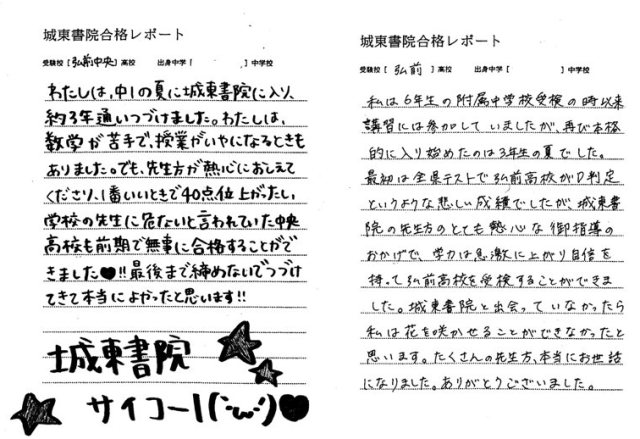 城東書院合格レポート
受験校［弘前中央］高校 出身中学［ ］中学校
わたしは、中1の夏に城東書院に入り、
約3年通いつづけました。わたしは、
数学が苦手で、授業がいやになるときも
ありました。でも、先生方が熱心におしえて
くださり、1番いいときで40点位上がったし、
学校の先生に危ないと言われていた中央
高校も前期で無事に合格することがで
きました♥!!最後まで締めないでつづけ
てきて本当によかったと思います!!
城東書院
サイコー!(･ω･)♥
城東書院合格レポート
受験校［弘前］高校 出身中学［ ］中学校
私は6年生の附属中学校受検の時以来
講習には参加していましたが、再び本格
的に入り始めたのは3年生の夏でした。
最初は全県テストで弘前高校がD判定
というような悲しい成績でしたが、城東書
院の先生方のとても熱心な御指導の
おかげで、学力は急激に上がり自信を
持って弘前高校を受検することができま
した。城東書院と出会っていなかったら
私は花を咲かせることができなかったと
思います。たくさんの先生方、本当にお世話
になりました。ありがとうございました。